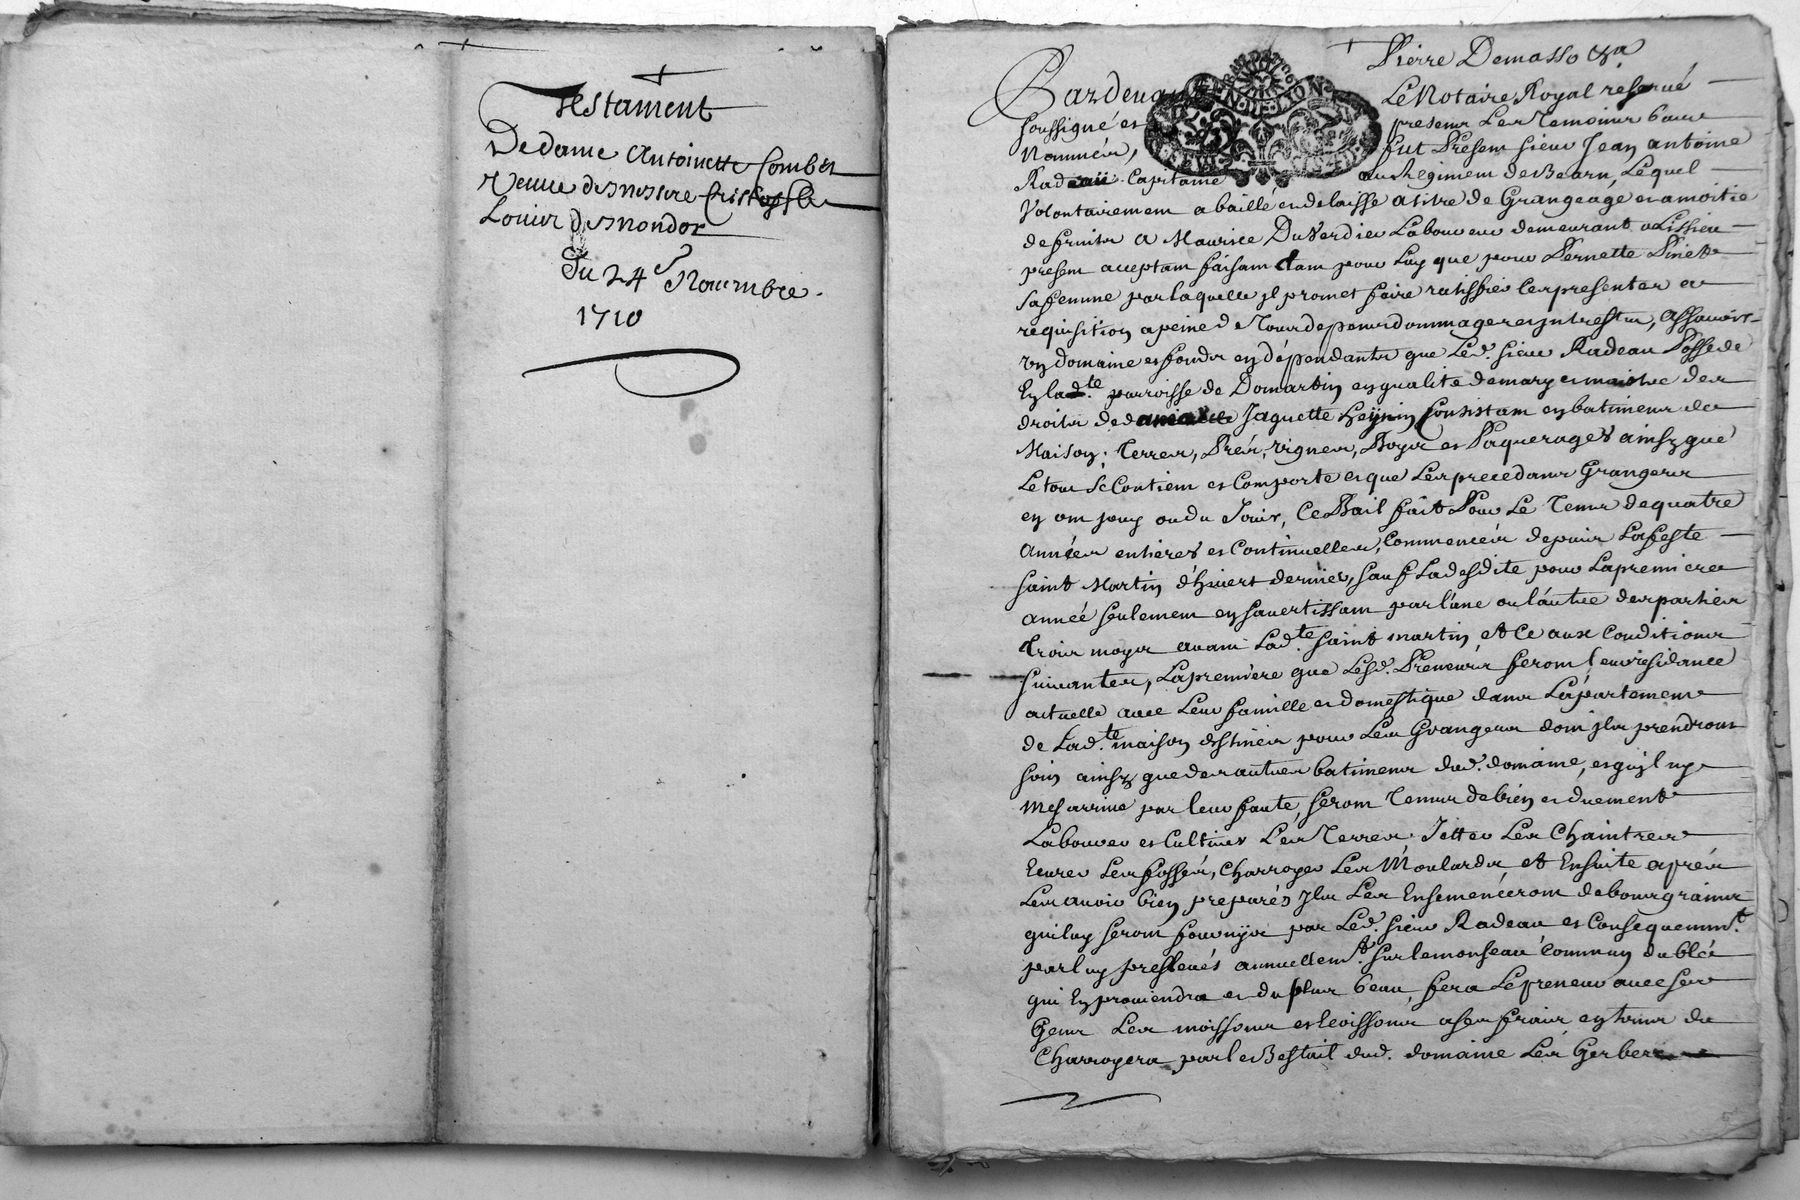 Testament
De dame Antoinette Combet
Veuve de messire Cristophle
Louier de mondor
Du 24e Novembre
1710
Pierre Demasso &a
Pardeuant Le Notaire Royal réserué
soussigné et presens Les Temoins bas
Nommés, fut Présent sieur Jean antoine
Radeau Capitaine au Regiment de Bearn, Lequel
Volontairement a baillé et delaissé a titre de Grangeage et a moitié
de fruits A Maurice DuVerdier Laboureur demeurant a Lissieu
present acceptant faisant tant pour Luy que pour Pernette Pinet
sa femme par laquelle jl promet faire ratiffier les presentes a
requisition a peine de Tous depens dommages et jntrests, Assauoir
vn domaine et fonds en dépendants que Led. sieur Radeau Possede
En lad.te parroisse de Domartin en qualité de mary et maistre des
droits de Jaquette heynin Consistant en batiments de
Maison, Terres, Prés, vignes, Boys et Paquerages ainsy que
Le tout se Contient et Comporte et que Les precedans Grangers
en ont jouy ou du Jouir, Ce Bail fait Pour Le Tems de quatre
Années entieres et Continuelles, Commencées depuis La feste
saint Martin d'hiuert dernier, sauf La desdite pour La premiere
année seulement en sauertissant par l'une ou l'autre des parties
trois moys auant Lad.te saint martin, et Ce aux Conditions
suiuantes, La premiere que Lesd. Preneurs feront leur residance
actuelle auec Leur famille et domestique dans L'apartement
de Lad.te maison destinée pour Les Grangers dont jls prendront
soin ainsy que des autres batiments dud. domaine, et qu'jl ny
Mesarriue par leur faute, seront Tenus de bien et duement
Labourer et Cultiuer Les Terres Jetter Les Chaintres
Curer Les fossés, Charroyer Les Moulards et Ensuite aprés
Les auoir bien preparés Jls Les Ensemenceront de bons grains
qui luy seront fournys par Led. sieur Radeau et Consequemm.t
par luy presleués annuellem.t sur le monseau Commun du blé
qui En prouiendra et du plus beau, fera Le preneur auec ses
Gens Les moissons et a ses frais, en tems du
Charroyera par le Bestail dud. domaine Les Gerbes